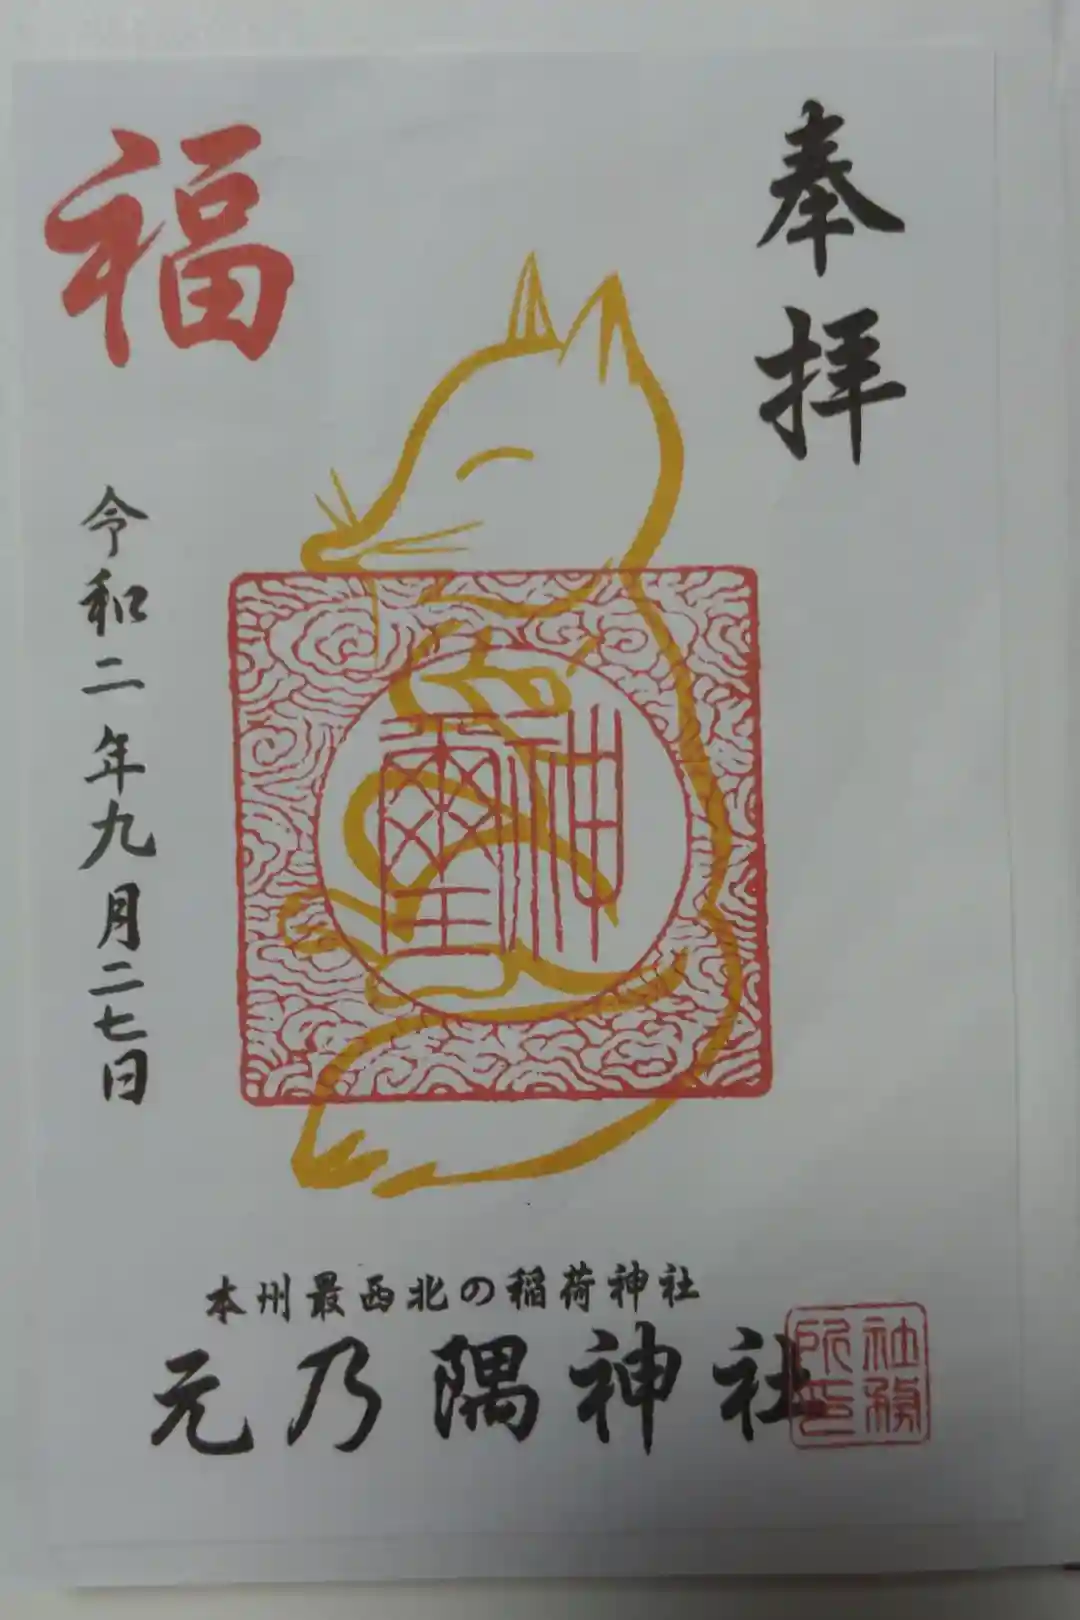 奉拝
福
神璽
令和二年九月二七日
本州最西北の稲荷神社
元乃隅神社
社務
所印